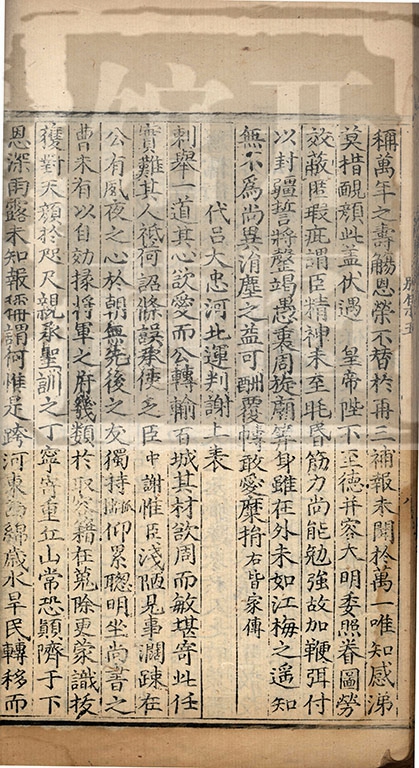 稱萬年之壽觴恩榮不替於再三補報未聞於萬一唯知感涕
莫措靦顔此蓋伏遇 皇帝陛下至德并容大明委照眷圖勞
效蔽匿瑕疵謂臣精神未至眊昏筋力尚能勉強故加鞭弭付
以封疆誓將罄竭愚衷周旋廟筭身雖在外未如江梅之遥知
無不爲尚異涓塵之益可酬覆幬敢愛糜捐右皆家傳
代吕大忠河北運判謝上表
刺舉一道其心欲愛而公轉輸百城其材欲周而敏堪寄此任
實難其人祗荷詔條誤承使乏臣中謝惟臣淺陋見事濶踈在
公有夙夜之心於朝無先後之友獨持孤仰累聰明坐尚書之
曹未有以自効掾將軍之府幾類於取容籍在蒐除更蒙識拔
獲對天顔於咫尺親承聖訓之丁寧寄重丘山常恐顛隮于下
恩深雨露未知報稱謂何惟是跨河東西綿歲水旱民轉移而